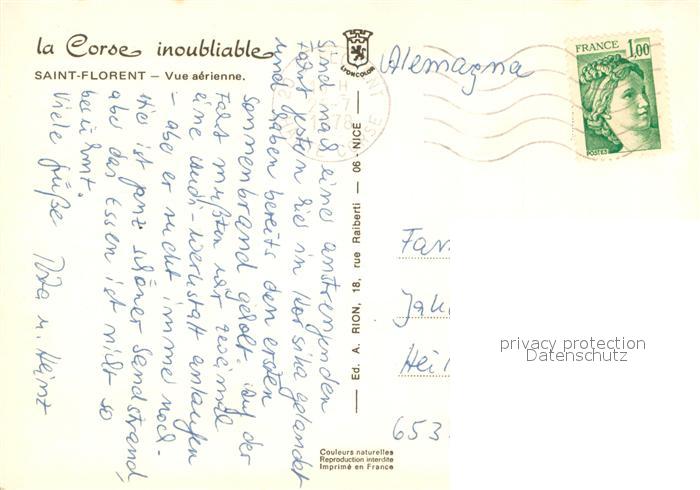 la Corse inoubliable
SAINT-FLORENT – Vue aérienne.
LYONCOLOR
Alemagna
FRANCE 1,00
POSTES
1978
HAUTE CORSE
Sind nach einer anstrengenden
Fahrt gestern hier in Korsika gelandet
und haben bereits den ersten
Sonnenbrand geholt. Auf der
Fahrt mußten wir zweimal
eine Audi-Werkstatt anlaufen
– aber er läuft immer noch.
Hier ist ganz schöner Sandstrand,
aber das Essen ist nicht so
berühmt.
Viele Grüße
u. Heinz
Ed. A. RION, 18, rue Raiberti – 06 - NICE –
Fam
Jak
Heil
653
privacy protection
Datenschutz
Couleurs naturelles
Reproduction interdite
Imprimé en France